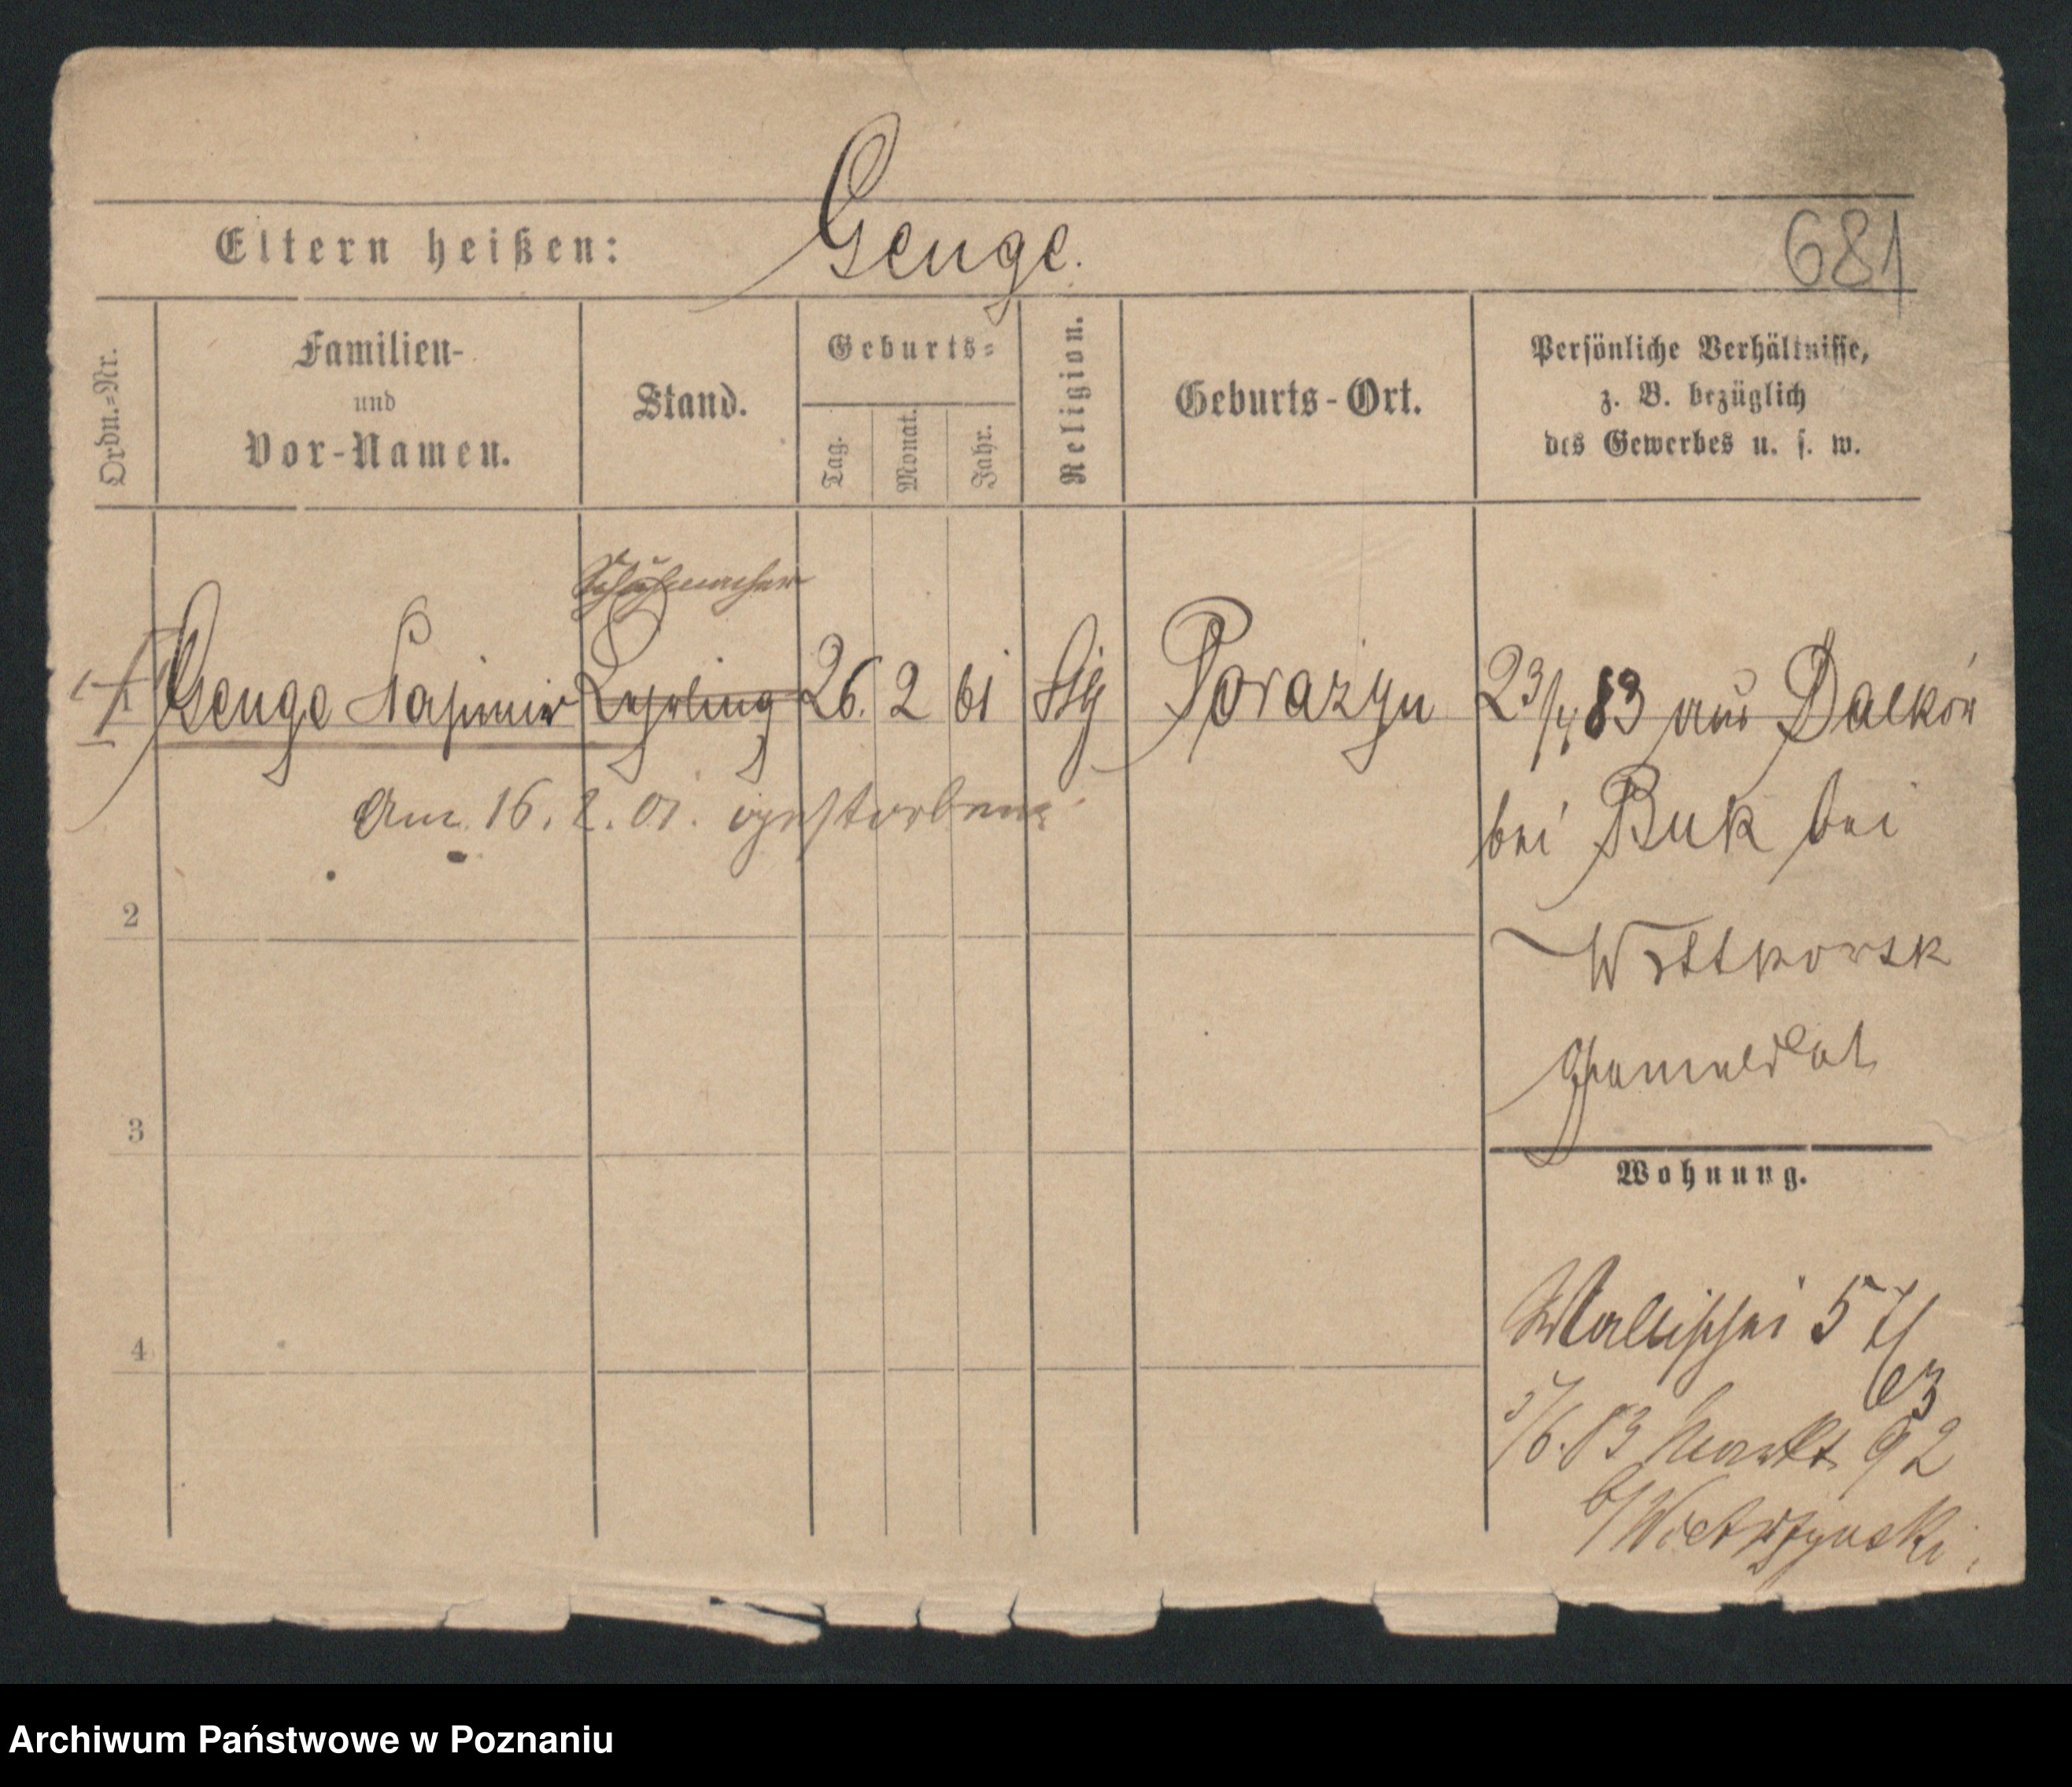 Genge.
Eltern heißen:
681
Ordn.=Nr.
Familien-
und
Vor-Namen.
Stand.
Geburts=
Tag.
Monat.
Jahr.
Religion.
Geburts-Ort.
Persönliche Verhältnisse,
z. B. bezüglich
des Gewerbes u. s. w.
Schuhmacher
1 Genge Casimir Lehrling 26. 2 61 Porazyn 23/4 83 aus Dalkow
Am 16. 2. 01. gestorben.
bei Buk bei
2
gemeldet
3
Wohnung.
Wallischei 5
4
/6. 83 Markt 92
b/
Archiwum Państwowe w Poznaniu